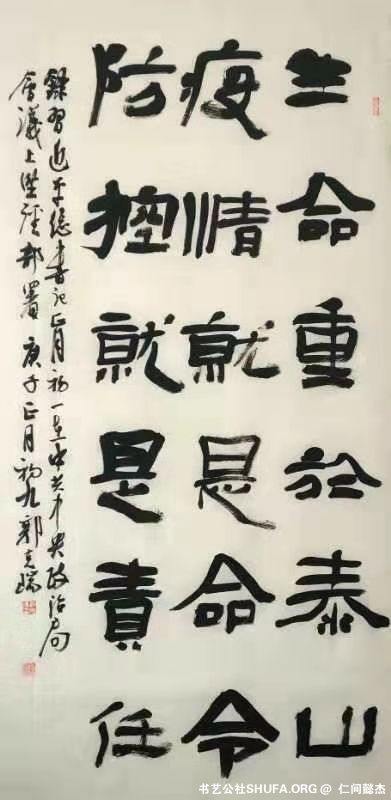 生命重於泰山
疫情就是命令
防控就是責任
錄習近平總書记正月初一在中共中央政治局
會議上部署 庚子正月初九郭克瑞
书艺公社SHUFA.ORG @ 仁间懿杰